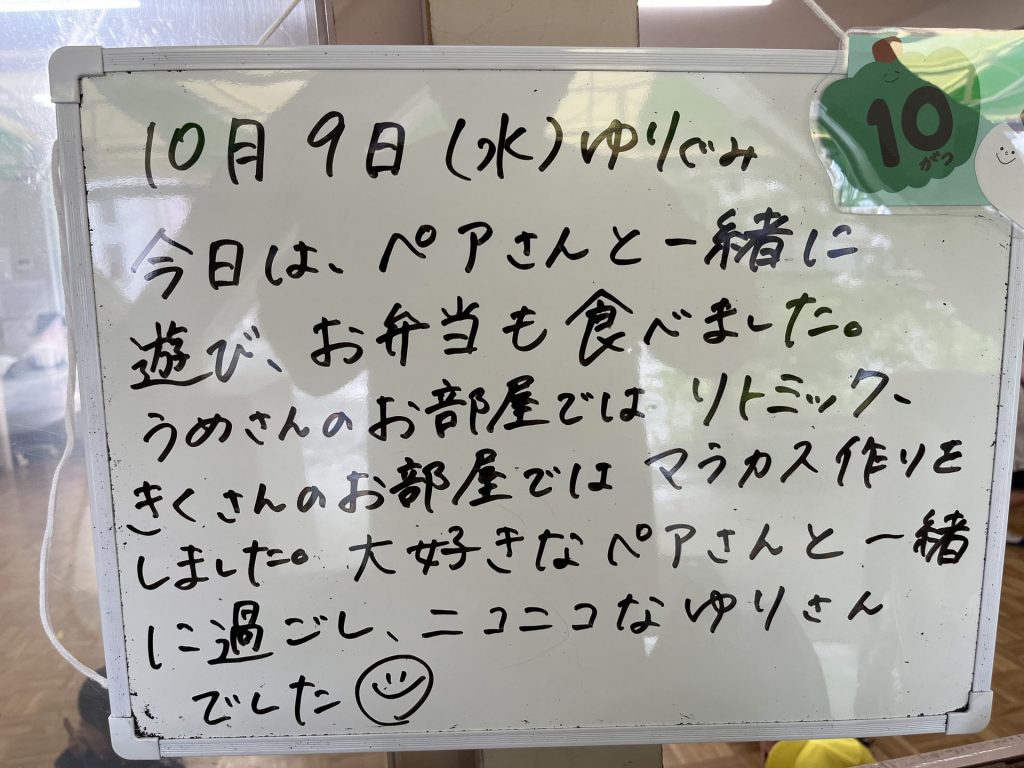 10月9日(水)ゆりぐみ
今日は、ペアさんと一緒に
遊び、お弁当も食べました。
うめさんのお部屋ではリトミック、
きくさんのお部屋ではマラカス作りを
しました。大好きなペアさんと一緒
に過ごし、ニコニコなゆりさん
でした
10
がつ